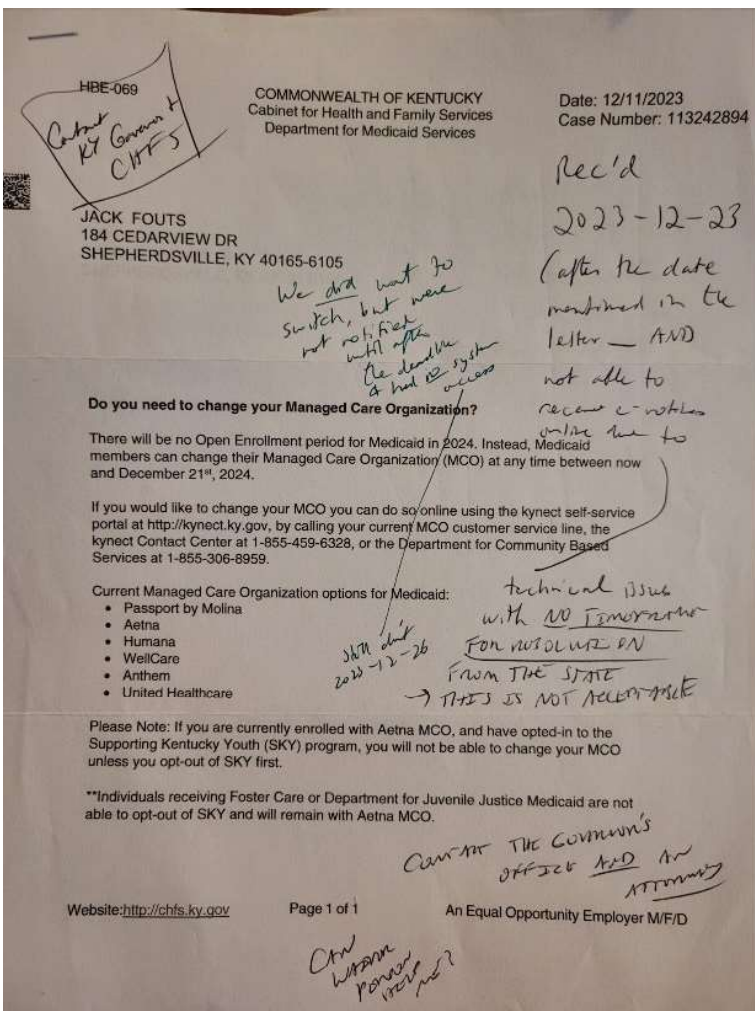 HBE-069
COMMONWEALTH OF KENTUCKY
Cabinet for Health and Family Services
Department for Medicaid Services
Date: 12/11/2023
Case Number: 113242894
Contact
KY Governor &
CHFS
Rec'd
2023-12-23
(after the date
mentioned in the
letter — AND
not able to
receive e-notices
online due to
JACK FOUTS
184 CEDARVIEW DR
SHEPHERDSVILLE, KY 40165-6105
We did want to
switch, but were
not notified
until after
the deadline
& had no system
access
Do you need to change your Managed Care Organization?
There will be no Open Enrollment period for Medicaid in 2024. Instead, Medicaid
members can change their Managed Care Organization (MCO) at any time between now
and December 21st, 2024.
If you would like to change your MCO you can do so online using the kynect self-service
portal at http://kynect.ky.gov, by calling your current MCO customer service line, the
kynect Contact Center at 1-855-459-6328, or the Department for Community Based
Services at 1-855-306-8959.
Current Managed Care Organization options for Medicaid:
• Passport by Molina
• Aetna
• Humana
• WellCare
• Anthem
• United Healthcare
still don't
2023-12-26
technical issue
with NO TIMEFRAME
FOR RESOLUTION
FROM THE STATE
→ THIS IS NOT ACCEPTABLE
Please Note: If you are currently enrolled with Aetna MCO, and have opted-in to the
Supporting Kentucky Youth (SKY) program, you will not be able to change your MCO
unless you opt-out of SKY first.
**Individuals receiving Foster Care or Department for Juvenile Justice Medicaid are not
able to opt-out of SKY and will remain with Aetna MCO.
CONTACT THE GOVERNOR'S
OFFICE AND AN
ATTORNEY
Website:http://chfs.ky.gov
Page 1 of 1
An Equal Opportunity Employer M/F/D
CAN
HELP
ME?